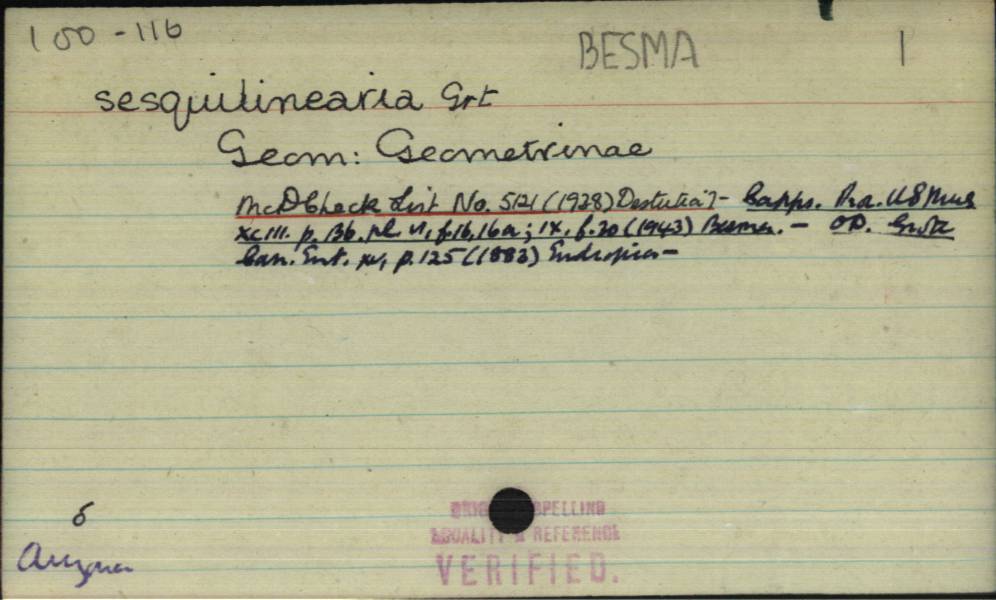 100-116 BESMA 1
sesquilinearia Grt
Geom: Geometrinae
McD Check List No. 5121 (1938) Destutia?- Capps. Pro. US Mus
xciii. p. 136. pl. vi, f.16, 16a; ix, f.20 (1943) Besma. - OD. Grote
Can. Ent. xv, p. 125 (1883) Endropia -
Arizona
SPELLING
LOCALITY & REFERENCE
VERIFIED.